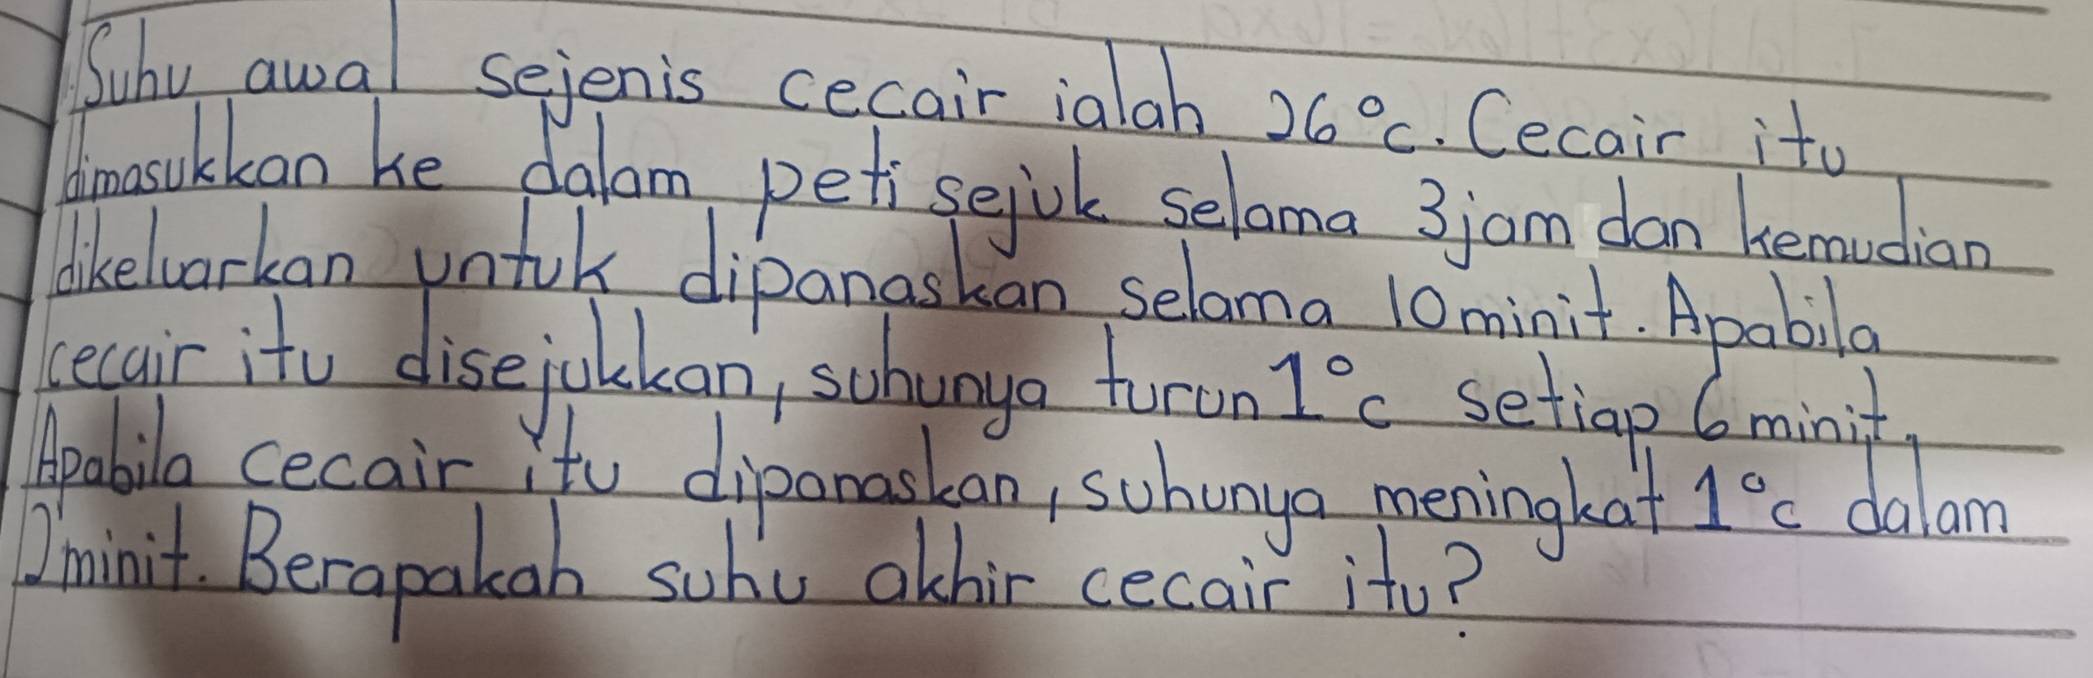 Suhu awal sejenis cecair ialah 26°c. Cecair itu
dimasukkan ke dalam peti sejuk selama 3jam dan kemudian
dikeluarkan untuk dipanaskan selama 10minit. Apabila
cecair itu disejukkan, suhunya turun 1°c setiap 6 minit.
Apabila cecair itu dipanaskan, suhunya meningkat 1°c dalam
2minit. Berapakah suhu akhir cecair itu?